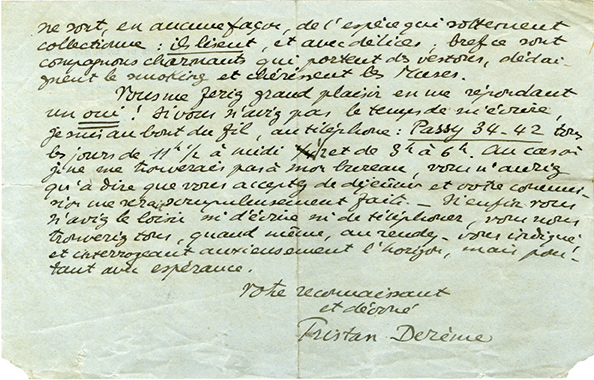 ne sont, en aucune façon, de l'espèce qui sottement
collectionne : ils lisent, et avec délices, bref ce sont
compagnons charmants qui portent des vestons, dédai-
gnent le smoking et chérissent les Muses.
Vous me feriez grand plaisir en me répondant
un oui ! Si vous n'avez pas le temps de m'écrire,
je suis au bout du fil, au téléphone : Passy 34-42 tous
les jours de 11h 1/2 à midi et de 3h à 6h. Au cas où
je ne me trouverais pas à mon bureau, vous n'auriez
qu'à dire que vous acceptez de déjeuner et votre commis-
sion me sera scrupuleusement faite. — Si enfin vous
n'avez le loisir ni d'écrire ni de téléphoner, vous nous
trouverez tous, quand même, au rendez-vous indiqué
et interrogeant anxieusement l'horizon, mais poin-
tant avec espérance.
Votre reconnaissant
et dévoué
Tristan Derème